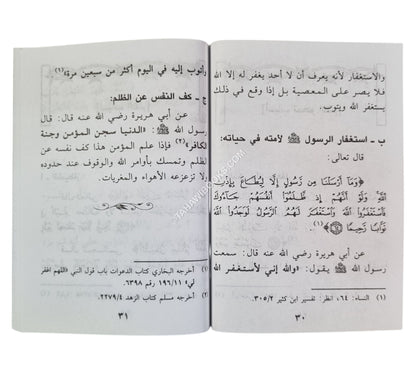 والاستغفار لأنه يعرف أن لا أحد يغفر له إلا الله
فلا يصر على المعصية بل إذا وقع في ذلك
يستغفر الله ويتوب.
ب ـ استغفار الرسول ﷺ لأمته في حياته:
قال تعالى:
﴿وَمَآ أَرْسَلْنَا مِن رَّسُولٍ إِلَّا لِيُطَاعَ بِإِذْنِ
ٱللَّهِ وَلَوْ أَنَّهُمْ إِذ ظَّلَمُوٓا۟ أَنفُسَهُمْ جَآءُوكَ
فَٱسْتَغْفَرُوا۟ ٱللَّهَ وَٱسْتَغْفَرَ لَهُمُ ٱلرَّسُولُ لَوَجَدُوا۟ ٱللَّهَ
تَوَّابًا رَّحِيمًا﴾(١).
عن أبي هريرة رضي الله عنه قال: سمعت
رسول الله ﷺ يقول: «والله إني لأستغفر الله
(١) النساء: ٦٤، انظر: تفسير ابن كثير ٣٠٥/٢.
٣٠
وأتوب إليه في اليوم أكثر من سبعين مرة»(١).
ج ـ كف النفس عن الظلم:
عن أبي هريرة رضي الله عنه قال: قال
رسول الله ﷺ: «الدنيا سجن المؤمن وجنة
الكافر»(٢) فإذا علم المؤمن هذا كف نفسه عن
الظلم وتمسك بأوامر الله والوقوف عند حدوده
ولا تزعزعه الأهواء والمغريات.
(١) أخرجه البخاري كتاب الدعوات باب قول النبي «اللهم اغفر
لي» ١٩٦/١١ رقم ٦٣٩٨.
(٢) أخرجه مسلم كتاب الزهد ٢٢٧٩/٤.
٣١